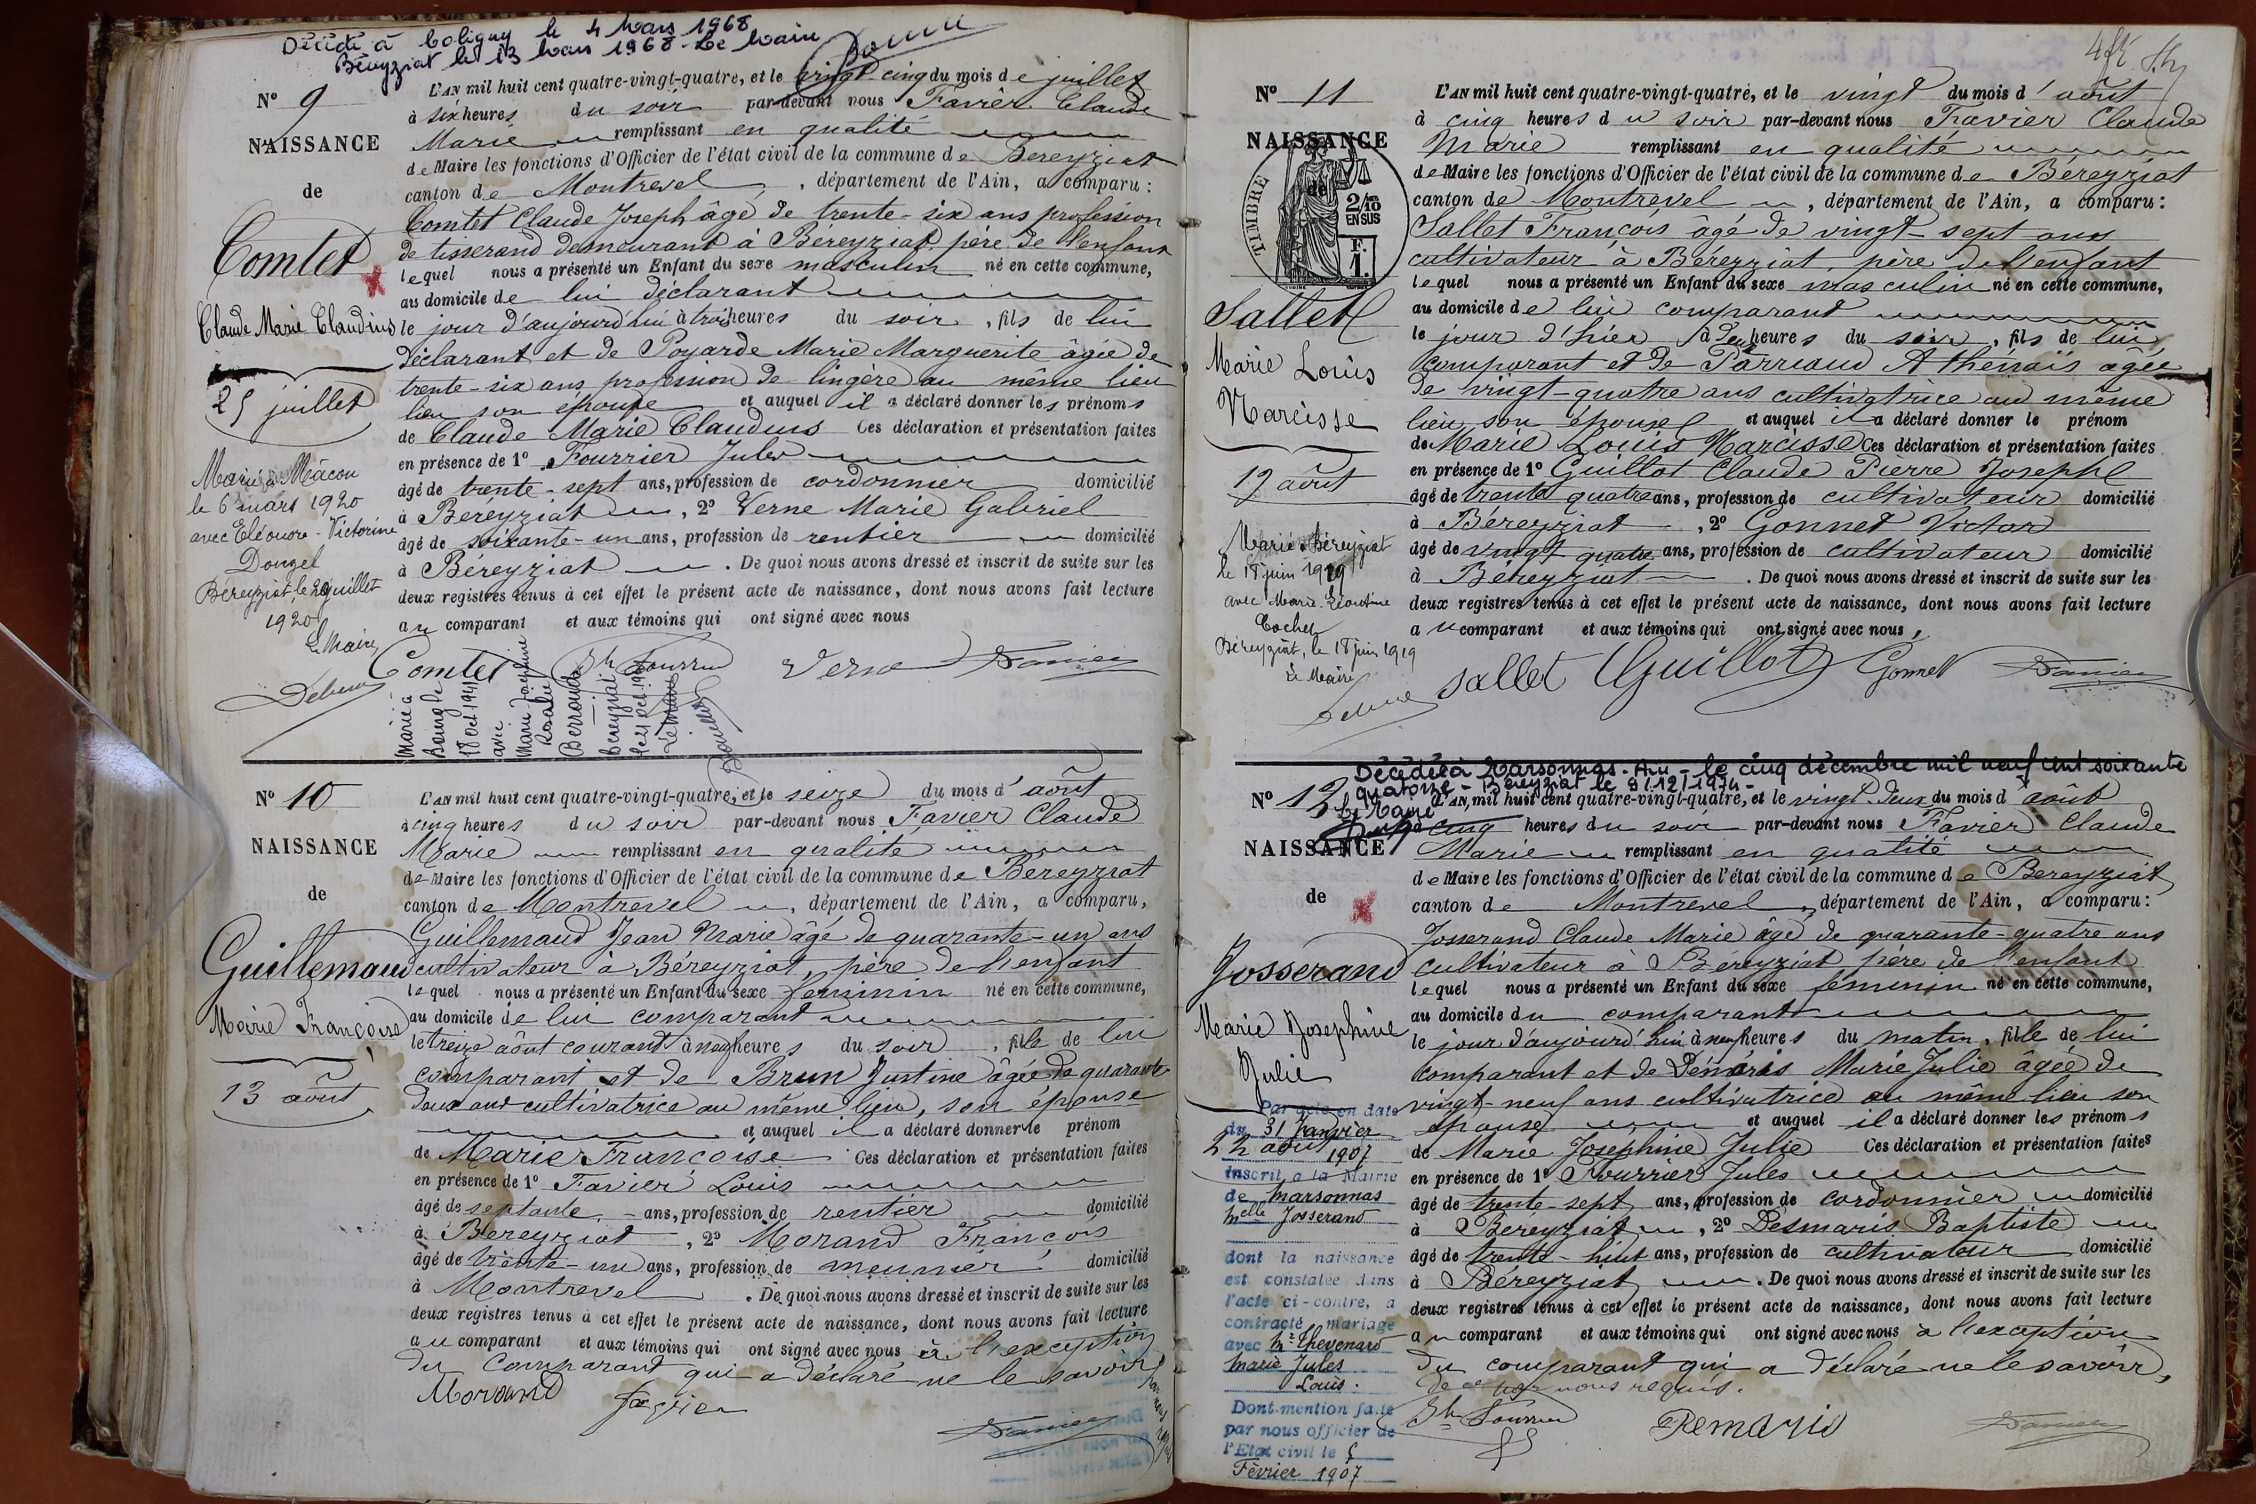 Décédé à Coligny le 4 Mars 1968
Béreyziat le 13 Mars 1968 - Le Maire
N° 9
NAISSANCE
de
Comtet
Claude Marie Claudius
25 juillet
Marié à Mâcon
le 6 mars 1920
avec Eléonore-Victorine
Donzel
Béreyziat, le 20 juillet
1920
Le Maire
L'AN mil huit cent quatre-vingt-quatre, et le vingt-cinq du mois de juillet
à six heures du soir par-devant nous Favier Claude
Marie remplissant en qualité
de Maire les fonctions d'Officier de l'état civil de la commune de Bereyziat
canton de Montrevel, département de l'Ain, a comparu :
Comtet Claude Joseph âgé de trente-six ans profession
de tisserand demeurant à Béreyziat, père de l'enfant
lequel nous a présenté un Enfant du sexe masculin né en cette commune,
au domicile de lui déclarant
le jour d'aujourd'hui à trois heures du soir, fils de lui
déclarant et de Poyarde Marie Marguerite âgée de
trente-six ans profession de lingère au même lieu
lieu son épouse et auquel il a déclaré donner les prénoms
de Claude Marie Claudius Ces déclaration et présentation faites
en présence de 1° Fourrier Jules
âgé de trente-sept ans, profession de cordonnier domicilié
à Béreyziat, 2° Verne Marie Gabriel
âgé de soixante-un ans, profession de rentier domicilié
à Béreyziat. De quoi nous avons dressé et inscrit de suite sur les
deux registres tenus à cet effet le présent acte de naissance, dont nous avons fait lecture
au comparant et aux témoins qui ont signé avec nous
Comtet Jh Fourrier Verne Favier
Marié à
Bourg le
18 oct 1941
avec
Marie Joséphine
Rosalie
Berroud
Bereyziat
le 21 oct 1941
Le Maire
N° 10
NAISSANCE
de
Guillemaud
Marie Françoise
13 août
L'AN mil huit cent quatre-vingt-quatre, et le seize du mois d'août
à cinq heures du soir par-devant nous Favier Claude
Marie remplissant en qualité
de Maire les fonctions d'Officier de l'état civil de la commune de Bereyziat
canton de Montrevel, département de l'Ain, a comparu,
Guillemaud Jean Marie âgé de quarante-un ans
cultivateur à Béreyziat, père de l'enfant
lequel nous a présenté un Enfant du sexe féminin né en cette commune,
au domicile de lui comparant
le treize août courant à neuf heures du soir, fille de lui
comparant et de Brun Justine âgée de quarante
deux ans cultivatrice au même lieu, son épouse
et auquel il a déclaré donner le prénom
de Marie Françoise Ces déclaration et présentation faites
en présence de 1° Favier Louis
âgé de septante ans, profession de rentier domicilié
à Bereyziat, 2° Morand François
âgé de trente-un ans, profession de meunier domicilié
à Montrevel. De quoi nous avons dressé et inscrit de suite sur les
deux registres tenus à cet effet le présent acte de naissance, dont nous avons fait lecture
au comparant et aux témoins qui ont signé avec nous à l'exception
du comparant qui a déclaré ne le savoir
Morand Favier Favier
N° 11
NAISSANCE
de
TIMBRE
2/10
EN SUS
F.
1.
Sallet
Marie Louis
Narcisse
19 août
Marié à Béreyziat
le 18 juin 1919
avec Marie-Léontine
Cochet
Béreyziat, le 18 juin 1919
Le Maire
L'AN mil huit cent quatre-vingt-quatre, et le vingt du mois d'août
à cinq heures du soir par-devant nous Favier Claude
Marie remplissant en qualité
de Maire les fonctions d'Officier de l'état civil de la commune de Béreyziat
canton de Montrevel, département de l'Ain, a comparu :
Sallet François âgé de vingt-sept ans
cultivateur à Béreyziat, père de l'enfant
lequel nous a présenté un Enfant du sexe masculin né en cette commune,
au domicile de lui comparant
le jour d'hier à deux heures du soir, fils de lui
comparant et de Parriaud Athénaïs âgée
de vingt-quatre ans cultivatrice au même
lieu son épouse et auquel il a déclaré donner le prénom
de Marie Louis Narcisse Ces déclaration et présentation faites
en présence de 1° Guillot Claude Pierre Joseph
âgé de trente quatre ans, profession de cultivateur domicilié
à Béreyziat, 2° Gonnet Victor
âgé de vingt quatre ans, profession de cultivateur domicilié
à Béreyziat. De quoi nous avons dressé et inscrit de suite sur les
deux registres tenus à cet effet le présent acte de naissance, dont nous avons fait lecture
au comparant et aux témoins qui ont signé avec nous,
Sallet Guillot Gonnet Favier
Décédée à Marsonnas - Ain - le cinq décembre mil neuf cent soixante
quatorze - Béreyziat le 9/12/1974 -
Le Maire
N° 12
NAISSANCE
de
Josserand
Marie Josephine
Julie
22 août
Par acte en date
du 31 Janvier
1907
inscrit à la Mairie
de Marsonnas
Melle Josserand
dont la naissance
est constatée dans
l'acte ci-contre, a
contracté mariage
avec Mr Thevenard
Marie Jules
Louis.
Dont mention faite
par nous officier de
l'Etat civil le 5
Février 1907
L'AN mil huit cent quatre-vingt-quatre, et le vingt-deux du mois d'août
à cinq heures du soir par-devant nous Favier Claude
Marie remplissant en qualité
de Maire les fonctions d'Officier de l'état civil de la commune de Bereyziat
canton de Montrevel, département de l'Ain, a comparu :
Josserand Claude Marie âgé de quarante-quatre ans
cultivateur à Béreyziat père de l'enfant
lequel nous a présenté un Enfant du sexe féminin né en cette commune,
au domicile du comparant
le jour d'aujourd'hui à neuf heures du matin, fille de lui
comparant et de Démaris Marie Julie âgée de
vingt-neuf ans cultivatrice au même lieu son
épouse et auquel il a déclaré donner les prénoms
de Marie Josephine Julie Ces déclaration et présentation faites
en présence de 1° Fourrier Jules
âgé de trente-sept ans, profession de cordonnier domicilié
à Bereyziat, 2° Desmaris Baptiste
âgé de trente-huit ans, profession de cultivateur domicilié
à Béreyziat. De quoi nous avons dressé et inscrit de suite sur les
deux registres tenus à cet effet le présent acte de naissance, dont nous avons fait lecture
au comparant et aux témoins qui ont signé avec nous à l'exception
du comparant qui a déclaré ne le savoir,
de ce par nous requis.
Jh Fourrier Demaris Favier